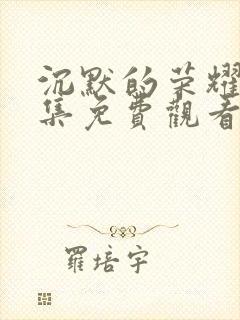 沉默的荣耀
集免費觀看
羅培宇